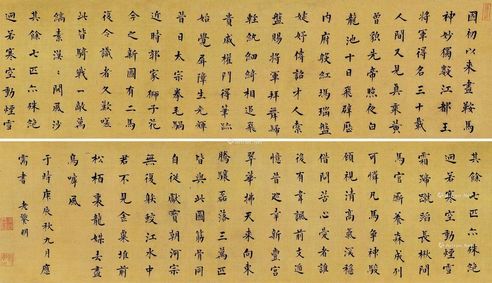 國初以來畫鞍馬
神妙獨數江都王
將軍得名三十載
人間又見真乘黃
曾貌先帝照夜白
龍池十日飛霹靂
內府殷紅瑪瑙盤
婕妤傳詔才人索
盤賜將軍拜舞歸
輕紈細綺相追飛
貴戚權門得筆跡
始覺屏障生光輝
昔日太宗拳毛騧
近時郭家獅子花
今之新圖有二馬
復令識者久歎嗟
此皆騎戰一敵萬
縞素漠〻開風沙
其餘七匹亦殊絕
迥若寒空動煙雪
其餘七匹亦殊絕
迥若寒空動煙雪
霜蹄蹴踏長楸間
馬官廝養森成列
可憐九馬爭神駿
顧視清高氣深穩
借問苦心愛者誰
後有韋諷前支遁
憶昔巡幸新豐宮
翠華拂天來向東
騰驤磊落三萬匹
皆與此圖筋骨同
自從獻寶朝河宗
無復射蛟江水中
君不見金粟堆前
松柏裏龍媒去盡
鳥風
于時庚辰秋九月應
書